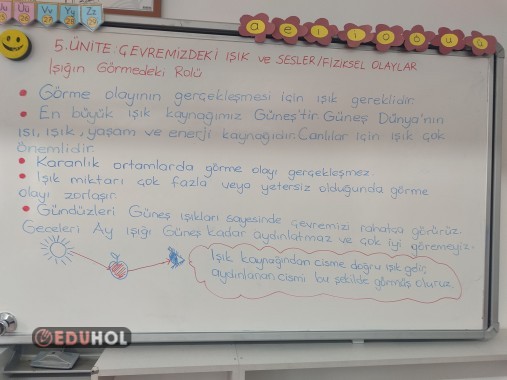 Uu Üü Vv Yy Zz
25 26 27 28 29
a e ı i o ö u ü
5. ÜNİTE: ÇEVREMİZDEKİ IŞIK VE SESLER/FİZİKSEL OLAYLAR
Işığın Görmedeki Rolü
• Görme olayının gerçekleşmesi için ışık gereklidir.
• En büyük ışık kaynağımız Güneş'tir. Güneş Dünya'nın
ısı, ışık, yaşam ve enerji kaynağıdır. Canlılar için ışık çok
önemlidir.
• Karanlık ortamlarda görme olayı gerçekleşmez.
• Işık miktarı çok fazla veya yetersiz olduğunda görme
olayı zorlaşır.
• Gündüzleri Güneş ışıkları sayesinde çevremizi rahatça görürüz.
Geceleri Ay ışığı Güneş kadar aydınlatmaz ve çok iyi göremeyiz.
Işık kaynağından cisme doğru ışık gelir,
aydınlanan cismi bu şekilde görmüş oluruz.
EDUHOL